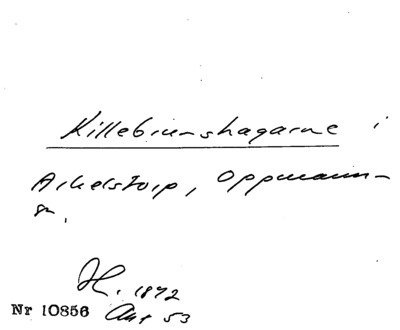 Killebrunshagarne i
Arkelstorp, Oppmanna-
sn.
H. 1872
Nr 10856 Akt 53